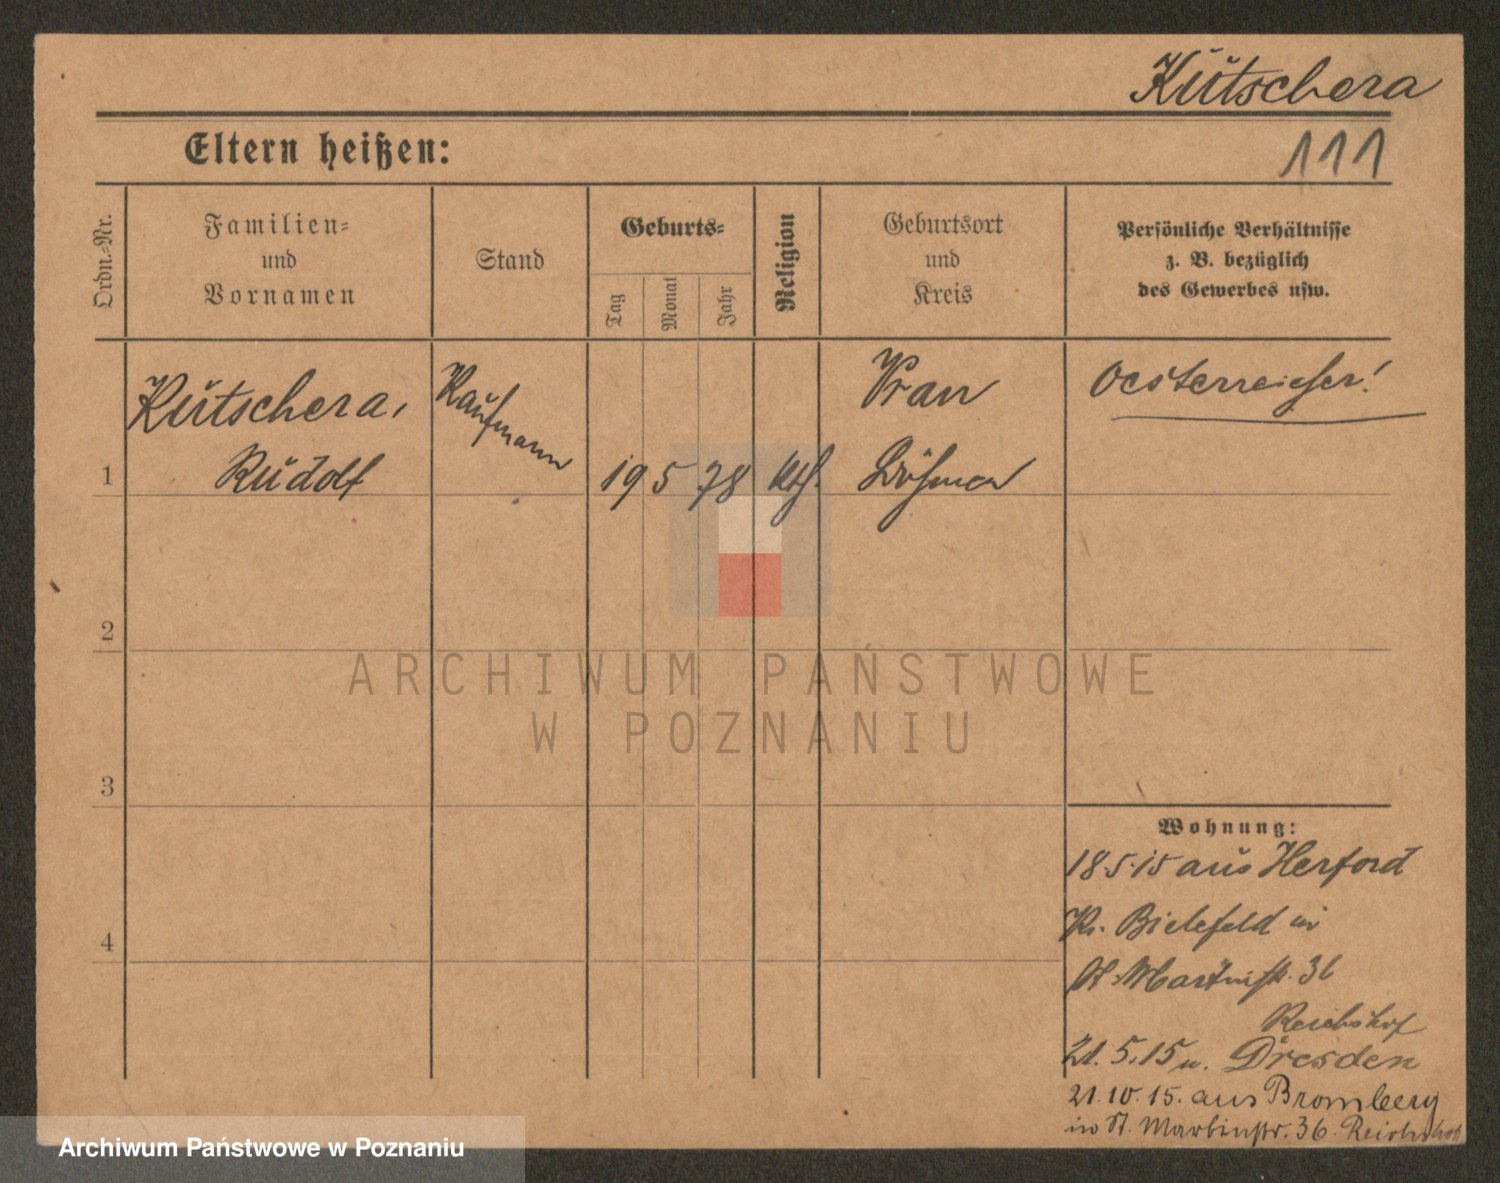 Kutschera
Eltern heißen:
111
Ordn.-Nr.
Familien=
und
Vornamen
Stand
Geburts=
Tag
Monat
Jahr
Religion
Geburtsort
und
Kreis
Persönliche Verhältnisse
z. B. bezüglich
des Gewerbes usw.
1
Kutschera,
Rudolf
Kaufmann
19 5 78
kth.
Vran
Böhmen
Oesterreicher!
2
3
4
Wohnung:
18.5.15 aus Herford
Kr. Bielefeld in
St. Martinstr. 36
Reichshof
21.5.15 n. Dresden
21.10.15. aus Bromberg
in St. Martinstr. 36. Reichshof
ARCHIWUM PAŃSTWOWE
W POZNANIU
Archiwum Państwowe w Poznaniu